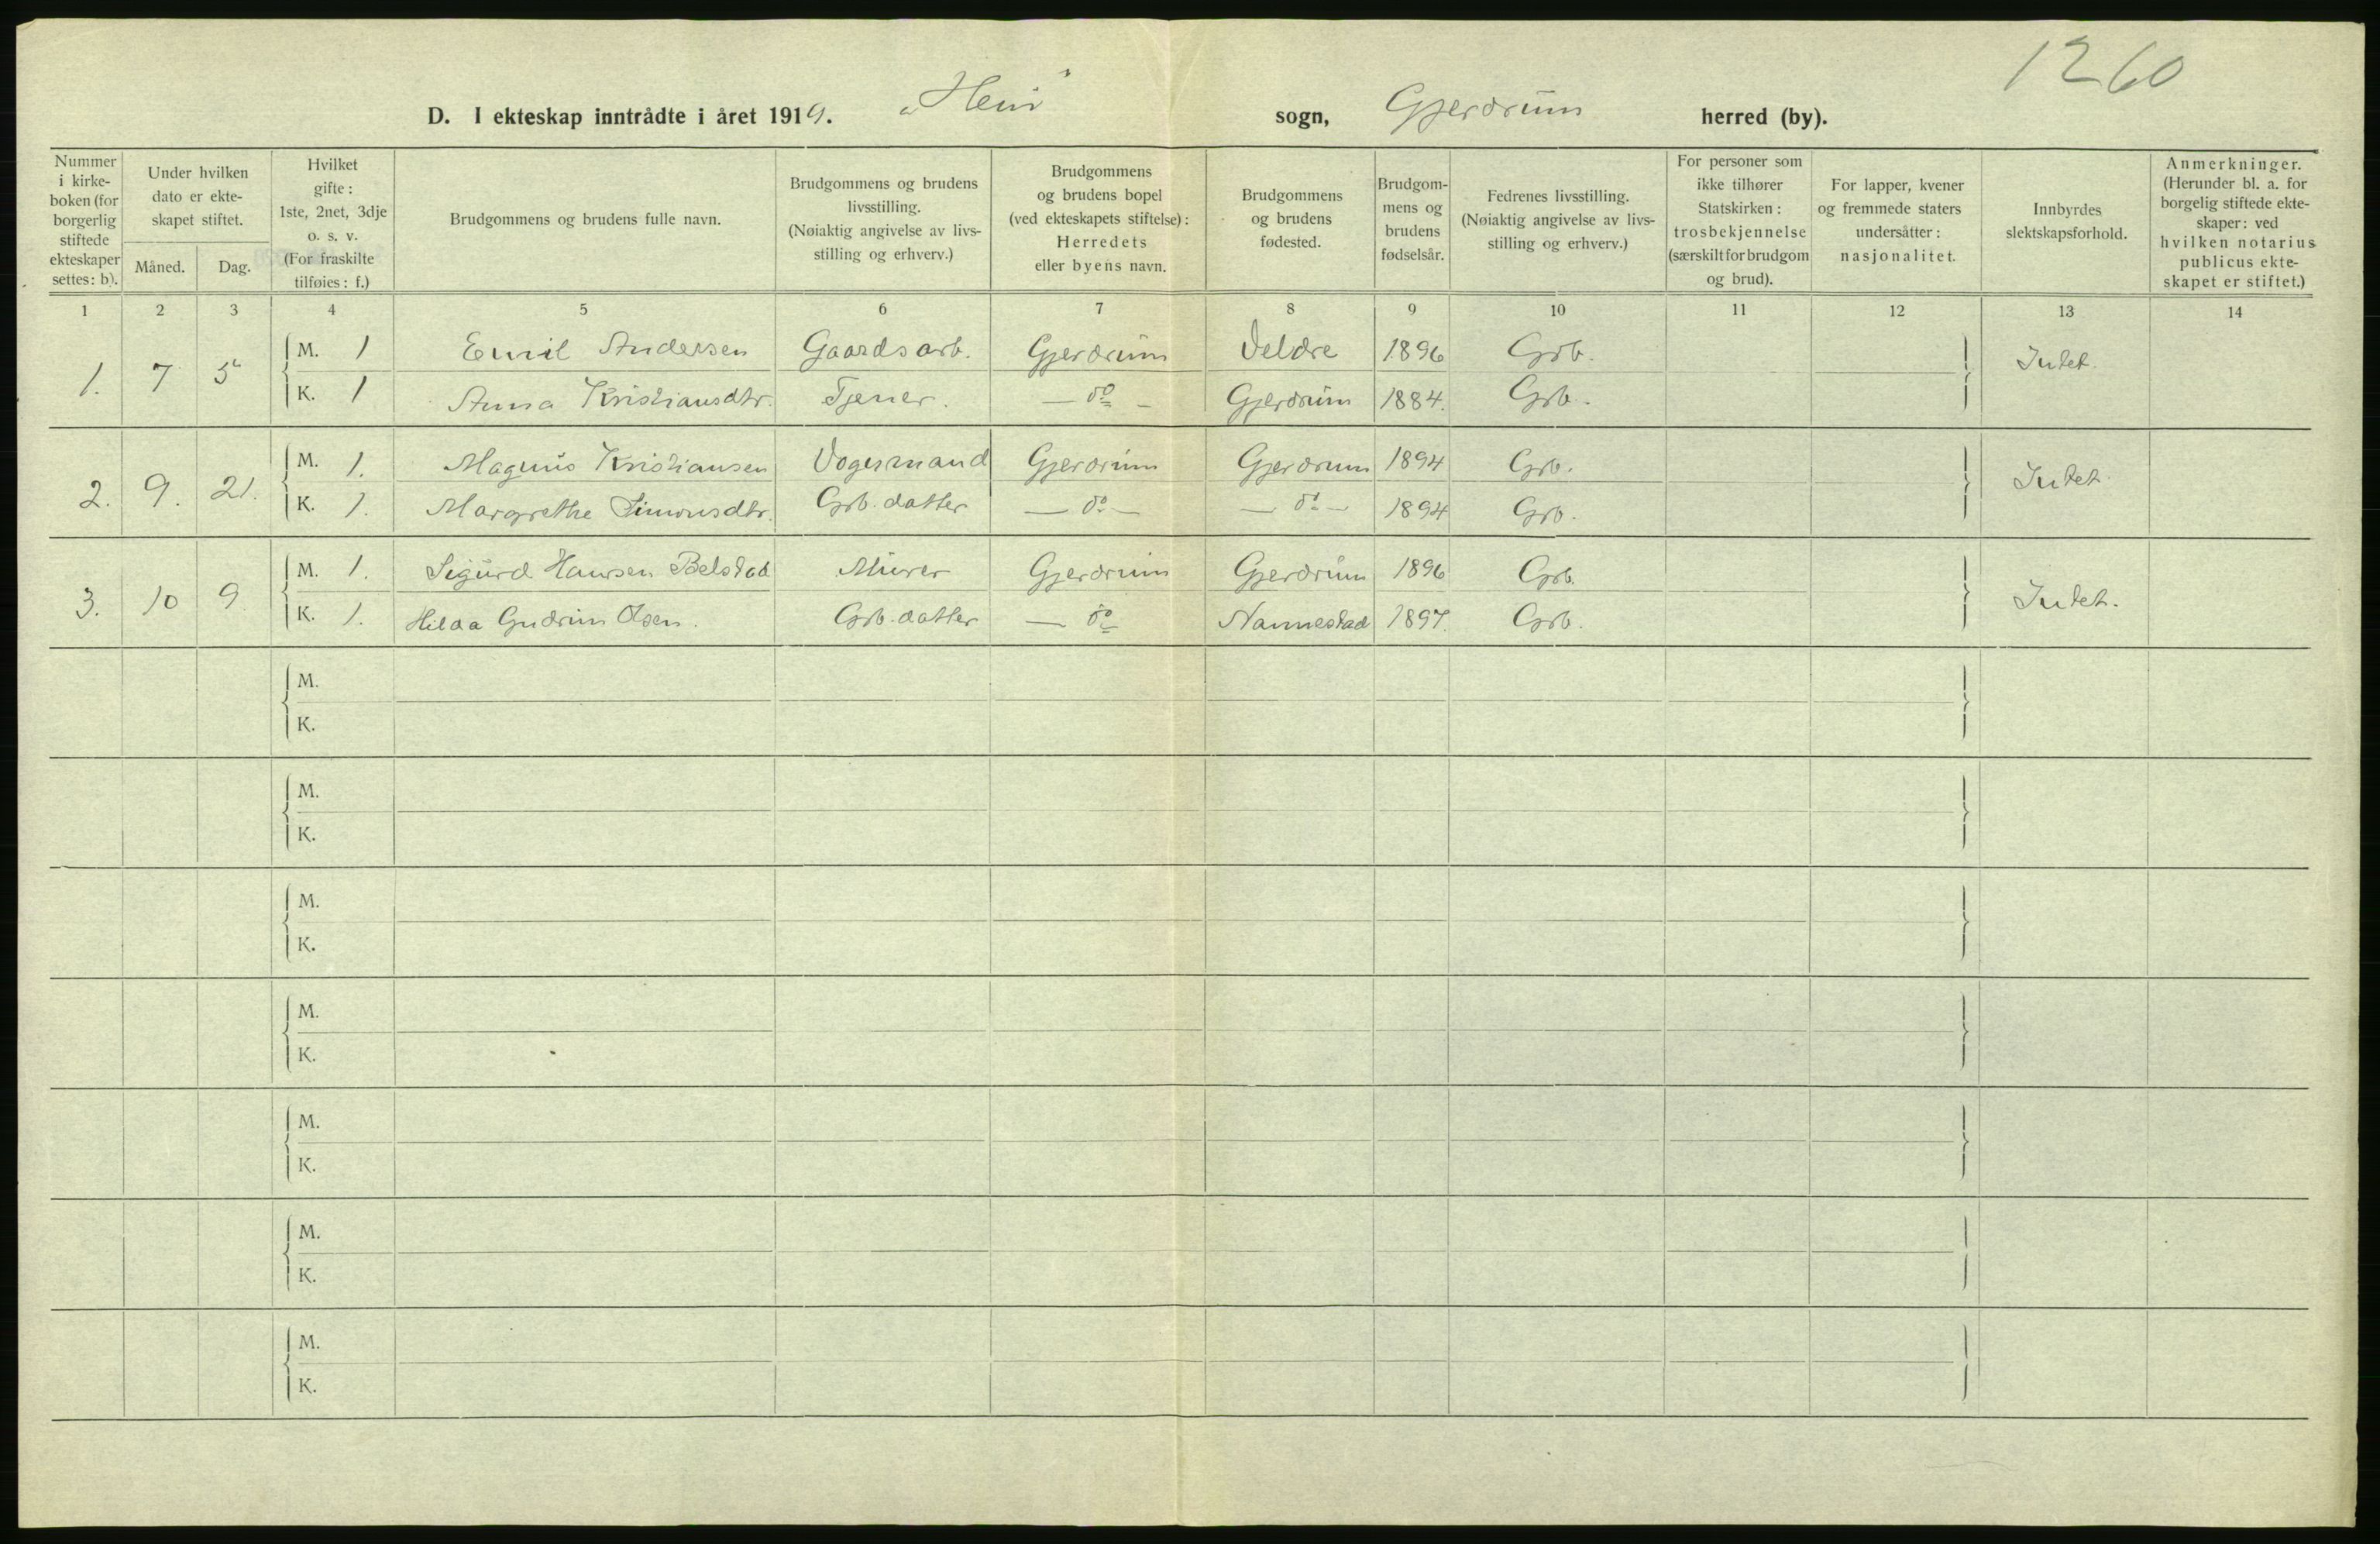 1260
D. I ekteskap inntrådte i året 1919. „Heni" sogn, Gjerdrum herred (by).
Nummer i kirkeboken (for borgerlig stiftede ekteskaper settes: b).
Under hvilken dato er ekteskapet stiftet.
Måned. Dag.
Hvilket gifte: 1ste, 2net, 3dje o. s. v. (For fraskilte tilføies: f.)
Brudgommens og brudens fulle navn.
Brudgommens og brudens livsstilling. (Nøiaktig angivelse av livsstilling og erhverv.)
Brudgommens og brudens bopel (ved ekteskapets stiftelse): Herredets eller byens navn.
Brudgommens og brudens fødested.
Brudgommens og brudens fødselsår.
Fedrenes livsstilling. (Nøiaktig angivelse av livsstilling og erhverv.)
For personer som ikke tilhører Statskirken: trosbekjennelse (særskilt for brudgom og brud).
For lapper, kvener og fremmede staters undersåtter: nasjonalitet.
Innbyrdes slektskapsforhold.
Anmerkninger. (Herunder bl. a. for borgelig stiftede ekteskaper: ved hvilken notarius publicus ekteskapet er stiftet.)
1 2 3 4 5 6 7 8 9 10 11 12 13 14
1. 7 5 M. 1 Emil Andersen Gaardsarb. Gjerdrum Veldre 1896 Grb. Intet.
K. 1 Anna Kristiansdtr. Tjener. — do — Gjerdrum 1884. Grb.
2. 9. 21. M. 1. Magnus Kristiansen Vognmand Gjerdrum Gjerdrum 1894 Grb. Intet.
K. 1. Margrethe Simensdtr. Grb. datter — do — — do — 1894 Grb.
3. 10 9 M. 1. Sigurd Hansen Belstad Murer Gjerdrum Gjerdrum 1896 Grb. Intet.
K. 1. Hilda Gudrun Olsen. Grb. datter — do Nannestad 1897. Grb.
M.
K.
M.
K.
M.
K.
M.
K.
M.
K.
M.
K.
M.
K.